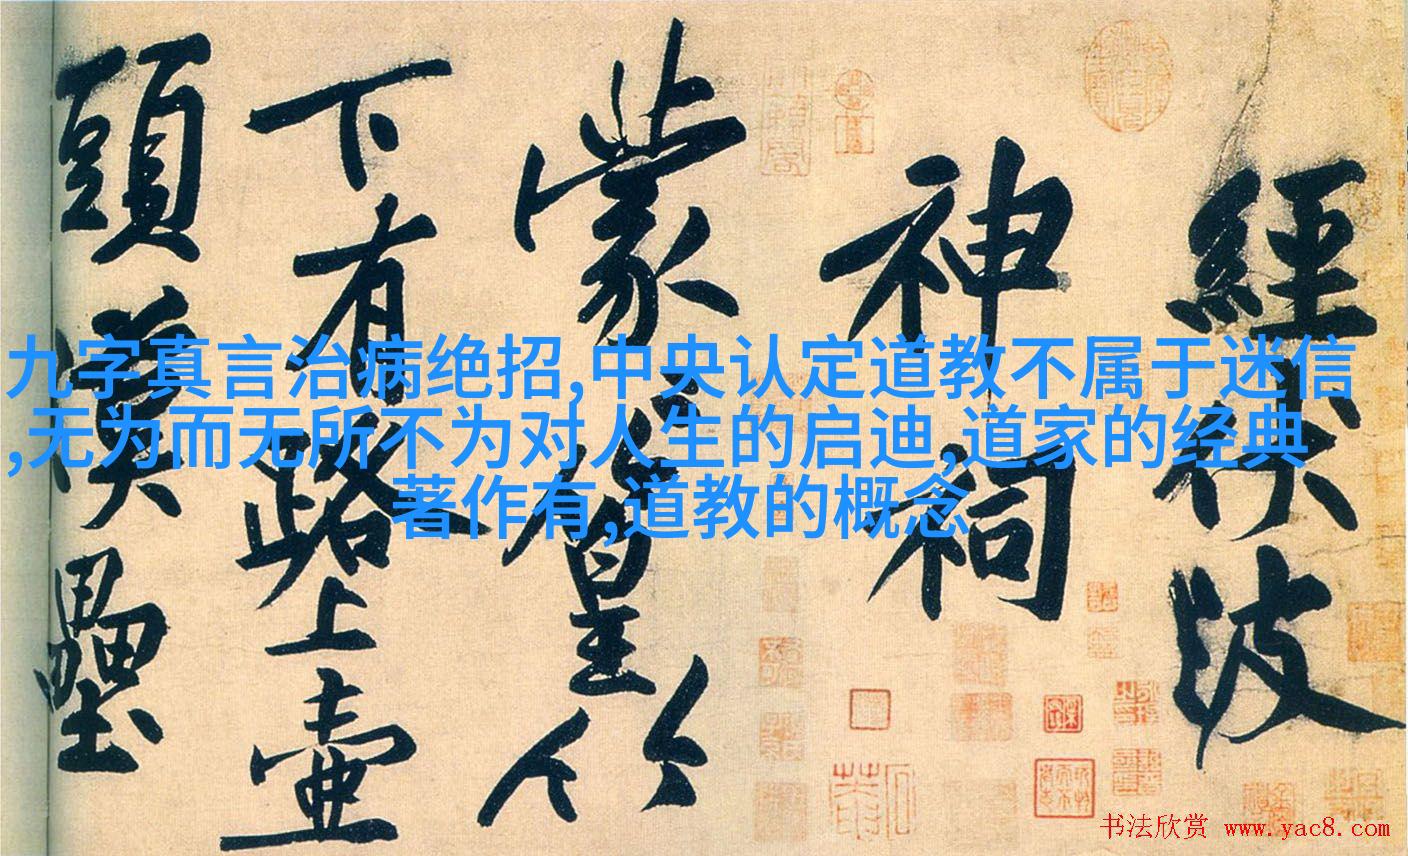 經伏波
神祠
蒙〻篁竹
下有路上壺
頭漢壘
九字真言治病绝招,中央认定道教不属于迷信
,无为而无所不为对人生的启迪,道家的经典
著作有,道教的概念
书法欣赏 www.yac8.com